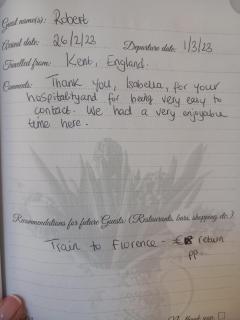 Guest name(s): Robert
Arrival date: 26/2/23 Departure date: 1/3/23
Travelled from: Kent, England.
Comments: Thank you, Isabella, for your
hospitality and for being very easy to
contact. We had a very enjoyable
time here.
Recommendations for future Guests: (Restaurants, bars, shopping etc.)
Train to Florence - € return
pp
thank you